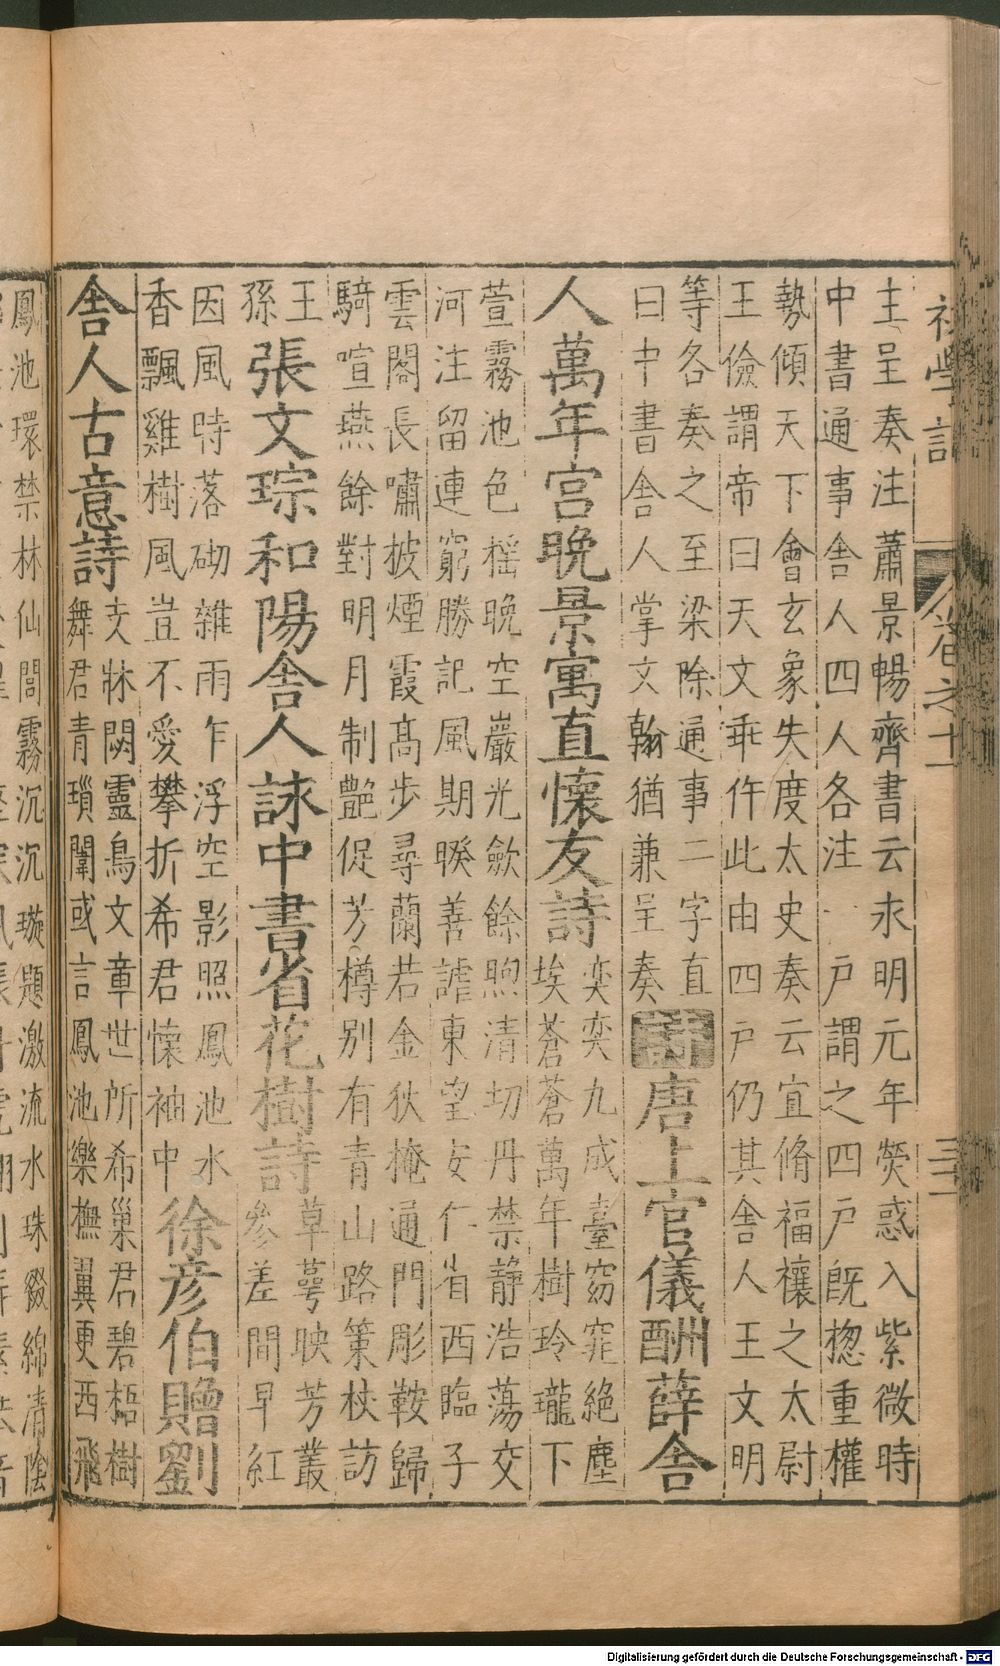 初學記 卷之十一 三十一
主呈奏注蕭景暢齊書云永明元年熒惑入紫微時
中書通事舍人四人各注一戶謂之四戶既揔重權
勢傾天下會玄象失度太史奏云宜脩福禳之太尉
王儉謂帝曰天文乖忤此由四戶仍其舍人王文明
等各奏之至梁除通事二字直
曰中書舍人掌文翰猶兼呈奏
詩唐上官儀酬薛舍
人萬年宮晚景寓直懷友詩
奕奕九成臺窈窕絶塵
埃蒼蒼萬年樹玲瓏下
萱霧池色揺晚空巖光歛餘煦清切丹禁静浩蕩交
河注留連窮勝記風期暌善謔東望安仁省西臨子
雲閣長嘯披煙霞高步尋蘭若金狄掩通門彫鞍歸
騎喧燕餘對明月制艷促芳樽别有青山路策杖訪
王
孫
張文琮和陽舍人詠中書省花樹詩
草萼映芳叢
參差間早紅
因風時落砌雜雨乍浮空影照鳳池水
香飄雞樹風豈不愛攀折希君懷袖中
徐彦伯贈劉
舍人古意詩
女牀閟靈鳥文章世所希巢君碧梧樹
舞君青瑣闈或言鳳池樂撫翼更西飛
鳳池環禁林仙閣霧沉沉璇題激流水珠綴綿清陰
Digitalisierung gefördert durch die Deutsche Forschungsgemeinschaft - DFG